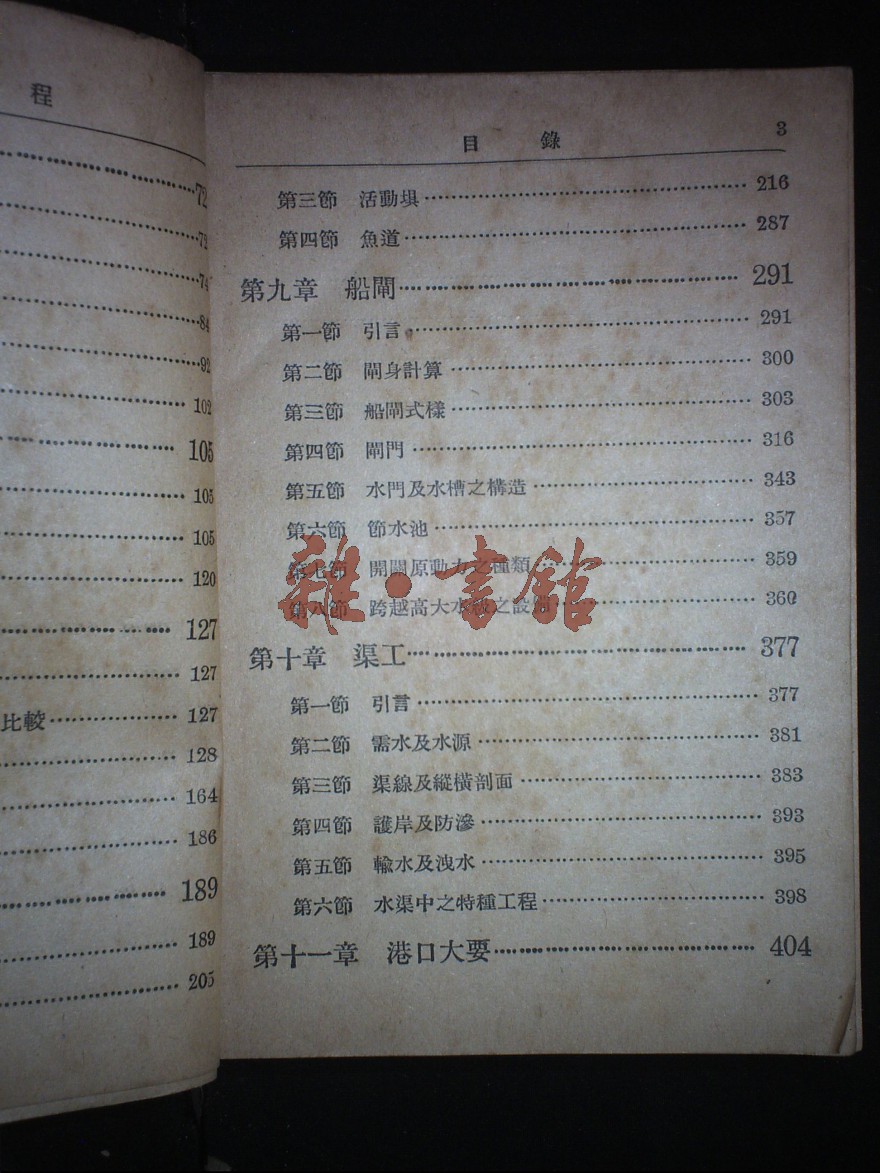 程
72
72
74
84
92
102
105
105
105
120
127
127
比較 127
128
164
186
189
189
205
目錄 3
第三節 活動埧 216
第四節 魚道 287
第九章 船閘 291
第一節 引言 291
第二節 閘身計算 300
第三節 船閘式樣 303
第四節 閘門 316
第五節 水門及水槽之構造 343
第六節 節水池 357
第七節 開關原動力之種類 359
第八節 跨越高大水級之設備 360
第十章 渠工 377
第一節 引言 377
第二節 需水及水源 381
第三節 渠線及縱橫剖面 383
第四節 護岸及防滲 393
第五節 輸水及洩水 395
第六節 水渠中之特種工程 398
第十一章 港口大要 404
雜·書館